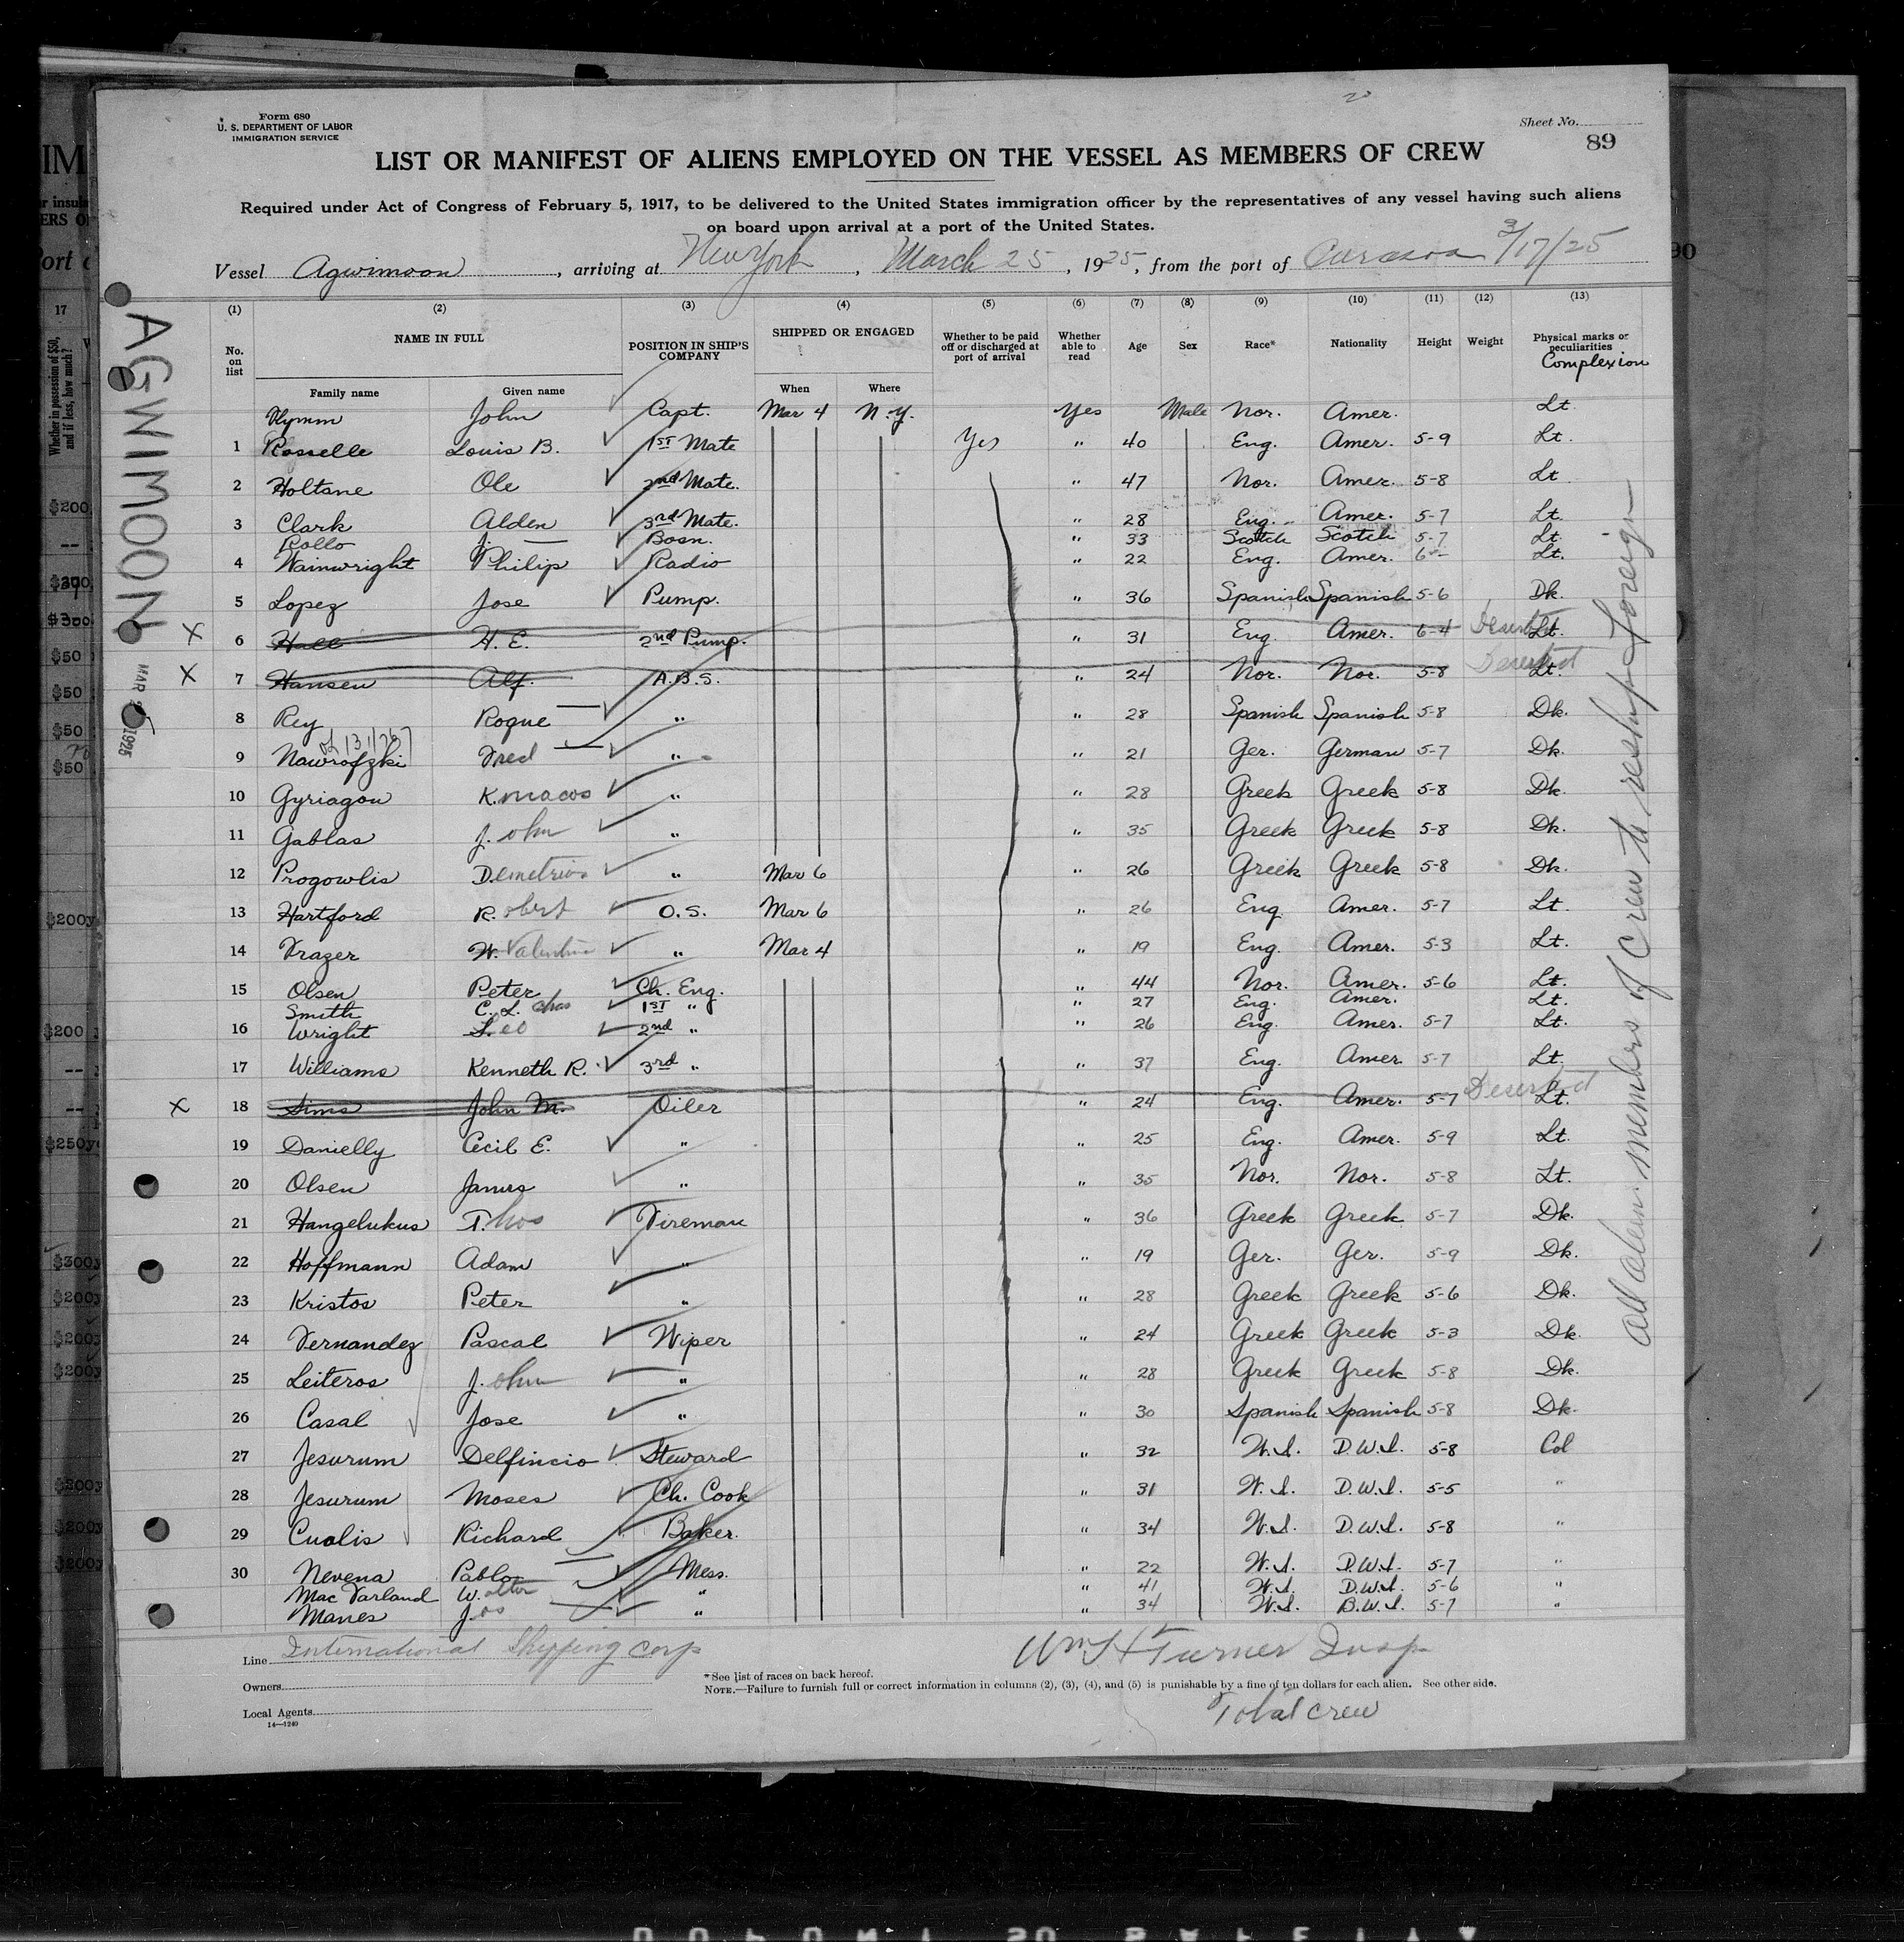 Form 680
U. S. DEPARTMENT OF LABOR
IMMIGRATION SERVICE
Sheet No.
89
LIST OR MANIFEST OF ALIENS EMPLOYED ON THE VESSEL AS MEMBERS OF CREW
Required under Act of Congress of February 5, 1917, to be delivered to the United States immigration officer by the representatives of any vessel having such aliens
on board upon arrival at a port of the United States.
Vessel Agwimoon, arriving at New York, March 25, 1925, from the port of Curacoa 3/17/25
(1) (2) (3) (4) (5) (6) (7) (8) (9) (10) (11) (12) (13)
No. on list NAME IN FULL Family name Given name POSITION IN SHIP'S COMPANY SHIPPED OR ENGAGED When Where Whether to be paid off or discharged at port of arrival Whether able to read Age Sex Race* Nationality Height Weight Physical marks or peculiarities Complexion
John Capt. Mar 4 N.Y. Yes Male Nor. Amer. Lt.
1 Rosselle Louis B. 1st Mate Yes " 40 Eng. Amer. 5-9 Lt.
2 Holtane Ole 2nd Mate. " 47 Nor. Amer. 5-8 Lt.
3 Clark Alden 3rd Mate. " 28 Eng. Amer. 5-7 Lt.
Rollo J. Bosn. " 33 Scotch Scotch 5-7 Lt.
4 Wainwright Philip Radio " 22 Eng. Amer. 6- Lt.
5 Lopez Jose Pump. " 36 Spanish Spanish 5-6 Dk.
X 6 Hall H. E. 2nd Pump. " 31 Eng. Amer. 6-4 Deserted Lt.
X 7 Hansen Alf. A.B.S. " 24 Nor. Nor. 5-8 Deserted Lt.
8 Rey Roque " " 28 Spanish Spanish 5-8 Dk.
9 Nawrofzki Fred " " 21 Ger. German 5-7 Dk.
10 Gyriagou K.macos " " 28 Greek Greek 5-8 Dk.
11 Gablas J.ohn " " 35 Greek Greek 5-8 Dk.
12 Progowlis Demetrios " Mar 6 " 26 Greek Greek 5-8 Dk.
13 Hartford R.obert O.S. Mar 6 " 26 Eng. Amer. 5-7 Lt.
14 Frazer W. Valentine " Mar 4 " 19 Eng. Amer. 5-3 Lt.
15 Olsen Peter Ch. Eng. " 44 Nor. Amer. 5-6 Lt.
Smith C. L. Chas 1st " " 27 Eng. Amer. Lt.
16 Wright Leo 2nd " " 26 Eng. Amer. 5-7 Lt.
17 Williams Kenneth R. 3rd " " 37 Eng. Amer 5-7 Lt.
X 18 Sims John M. Oiler " 24 Eng. Amer. 5-7 Deserted Lt.
19 Danielly Cecil E. " " 25 Eng. Amer. 5-9 Lt.
20 Olsen James " " 35 Nor. Nor. 5-8 Lt.
21 Hangelukus T.hos Fireman " 36 Greek Greek 5-7 Dk.
22 Hoffmann Adam " " 19 Ger. Ger. 5-9 Dk.
23 Kristos Peter " " 28 Greek Greek 5-6 Dk.
24 Fernandez Pascal Wiper " 24 Greek Greek 5-3 Dk.
25 Leiteros J.ohn " " 28 Greek Greek 5-8 Dk.
26 Casal Jose " " 30 Spanish Spanish 5-8 Dk.
27 Jesurum Delfincio Steward " 32 W.I. D.W.I. 5-8 Col
28 Jesurum Moses Ch. Cook " 31 W.I. D.W.I. 5-5 "
29 Cualis Richard Baker. " 34 W.I. D.W.I. 5-8 "
30 Nevena Pablo Mess. " 22 W.I. D.W.I. 5-7 "
Mac Farland W.alter " " 41 W.I. D.W.I. 5-6 "
Manes J.os " " 34 W.I. B.W.I. 5-7 "
AGWIMOON
MAR 25 1925
All alien members of Crew to reship Foreign
Line International Shipping Corp
Wm H Turner Insp
Owners
*See list of races on back hereof.
NOTE.—Failure to furnish full or correct information in columns (2), (3), (4), and (5) is punishable by a fine of ten dollars for each alien. See other side.
Local Agents
14—1240
Total crew